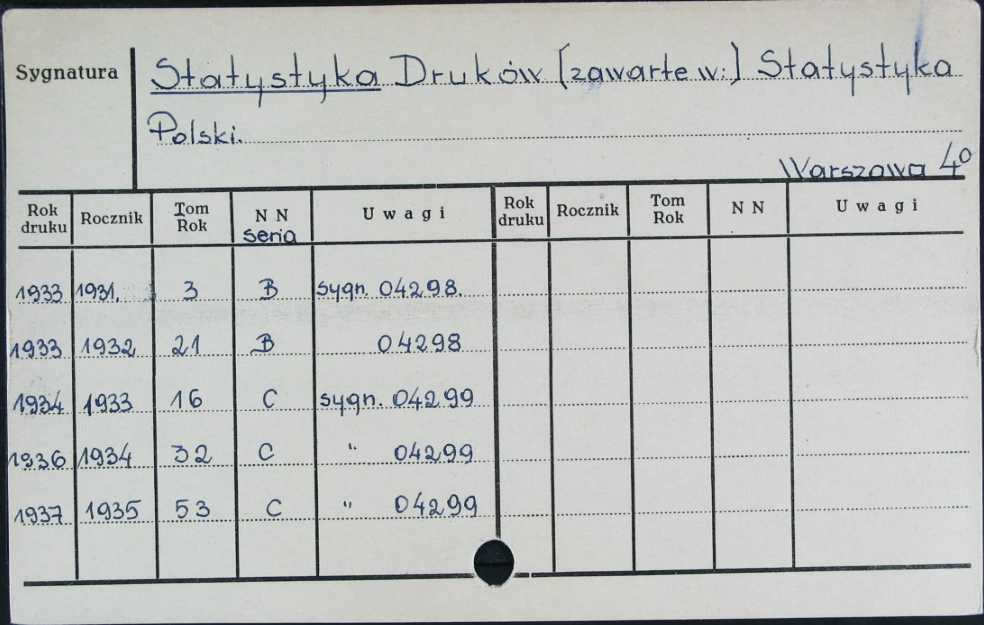 Sygnatura Statystyka Druków [zawarte w:] Statystyka
Polski.
Warszawa 4º
Rok druku Rocznik Tom Rok N N seria Uwagi Rok druku Rocznik Tom Rok N N Uwagi
1933 1931. 3 B sygn. 04298.
1933 1932 21 B 04298
1934 1933 16 C sygn. 04299
1936 1934 32 C " 04299
1937 1935 53 C " 04299